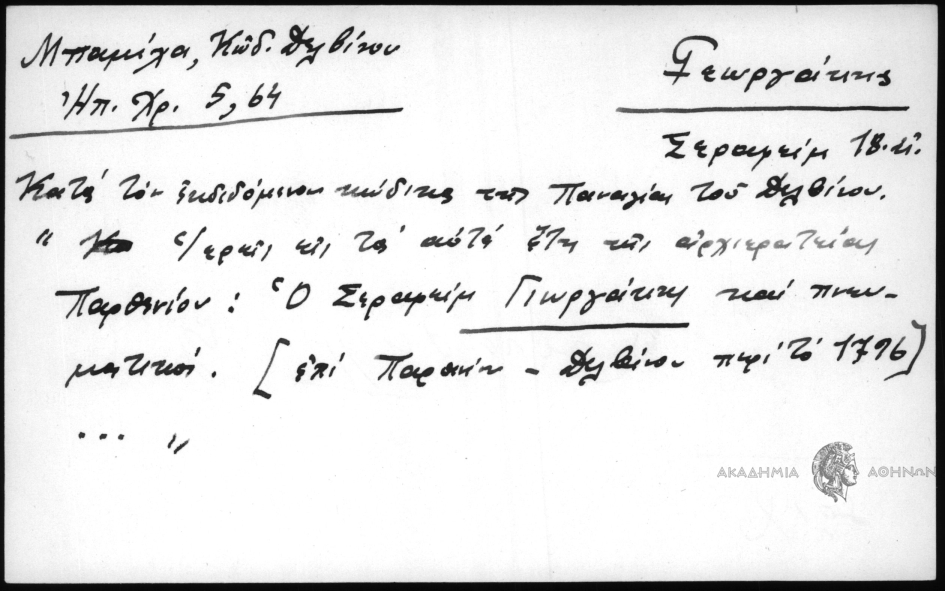 Μπαμίχα, Κῶδ. Δελβίνου
Ἠπ. Χρ. 5, 64
Γεωργάκης
Σεραφείμ 18. αἰ.
Κατά τόν ἐκδιδόμενον κώδικα τῆς Παναγίας τοῦ Δελβίνου.
" εἰς τά αὐτά ἔτη τῆς ἀρχιερατείας
Παρθενίου : Ὁ Σεραφείμ Γιωργάκης καί πνευ-
ματικοί. [ἐπί Παραμ. - Δελβίνου περί τό 1796]
... "
ΑΚΑΔΗΜΙΑ ΑΘΗΝΩΝ